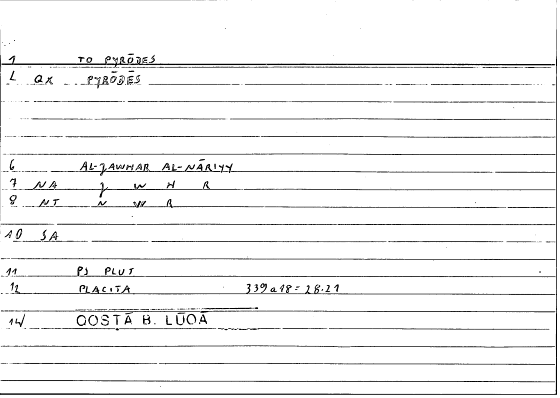 1 TO PYRŌDES
L QX PYRŌDĒS
6 AL-JAWHAR AL-NĀRIYY
7 NA J W H R
8 NT N W R
10 SA
11 PS PLUT
12 PLACITA 339a18 = 28.21
14/ QOSTĀ B. LŪQĀ